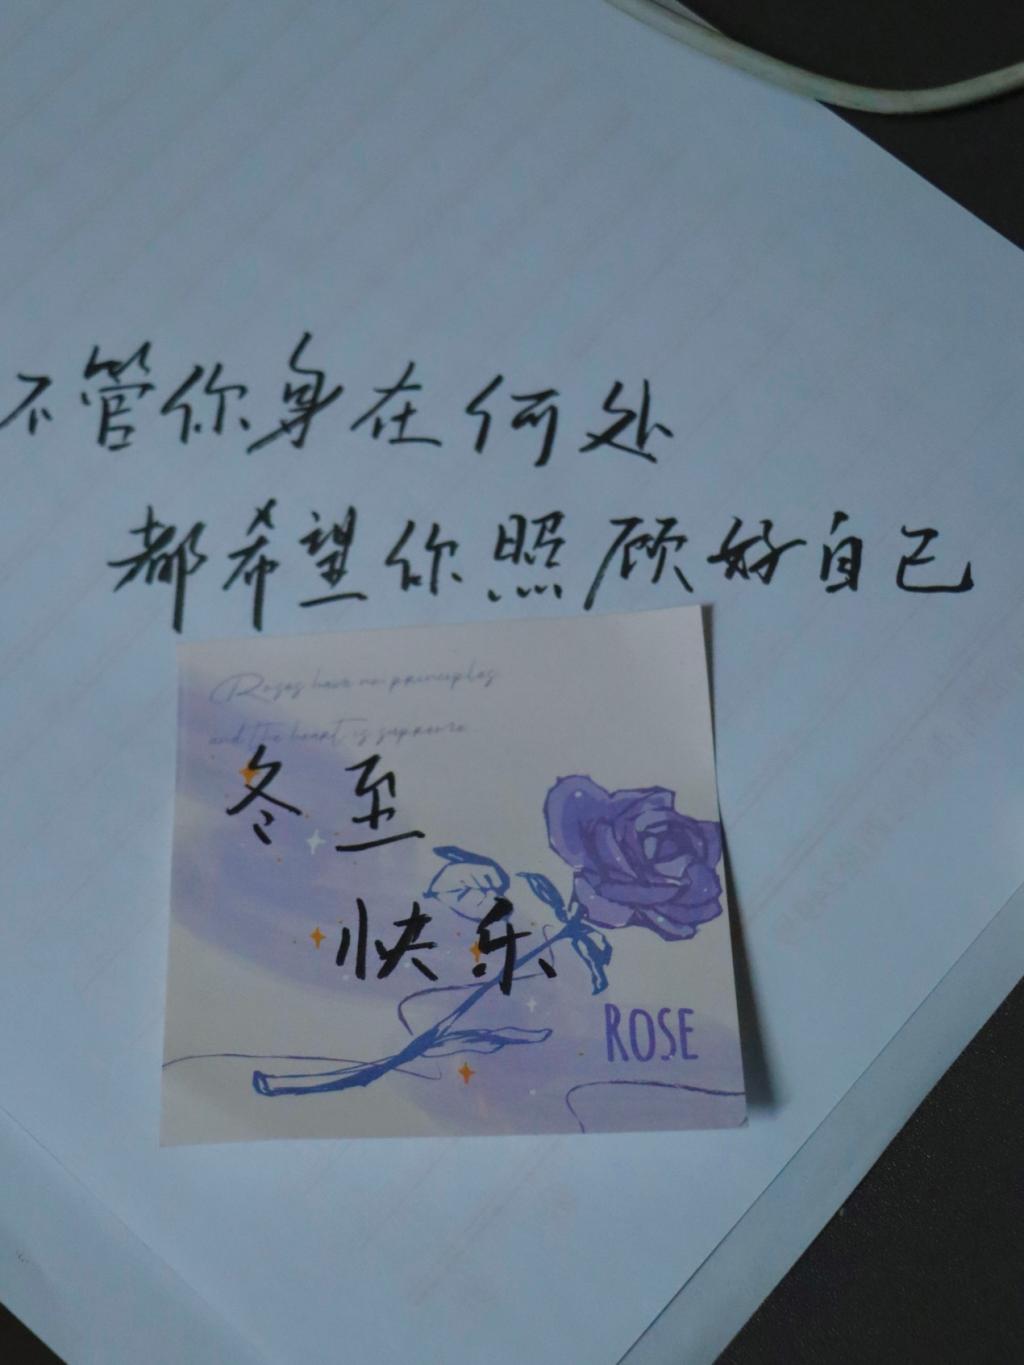 不管你身在何处
都希望你照顾好自己
Roses have no principles
and the heart is supreme
冬至
快乐
ROSE